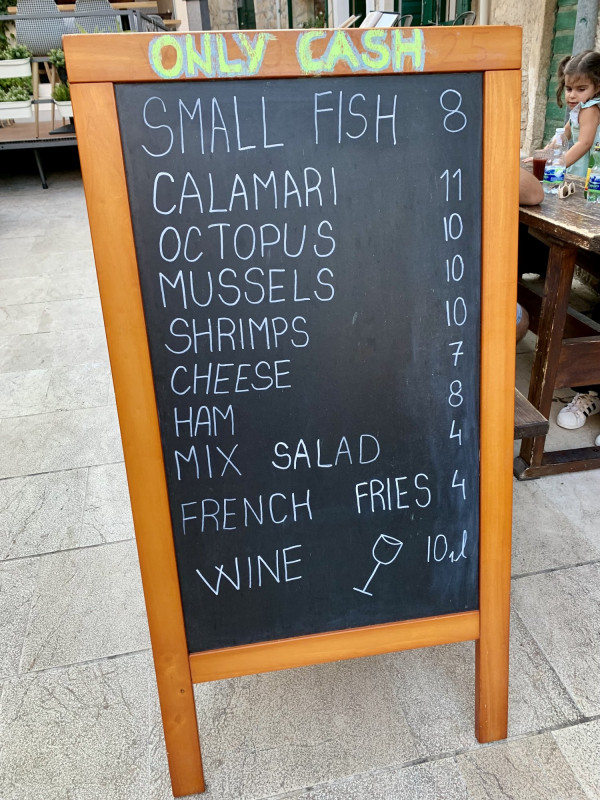 ONLY CASH
SMALL FISH 8
CALAMARI 11
OCTOPUS 10
MUSSELS 10
SHRIMPS 10
CHEESE 7
HAM 8
MIX SALAD 4
FRENCH FRIES 4
WINE 10,l